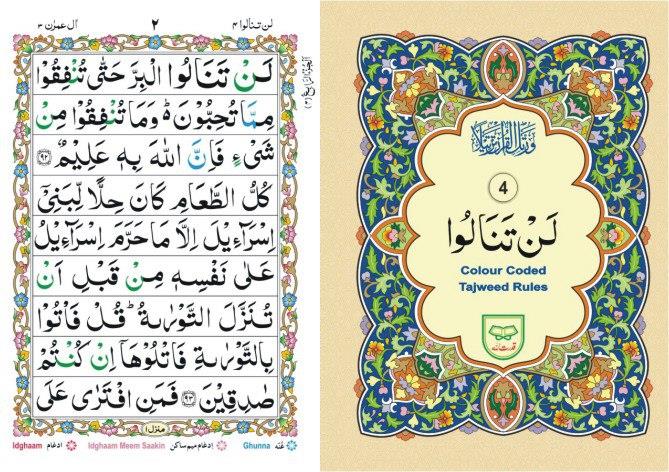 اٰل عمرٰن ٣
٢
لن تنالوا ٤
لَنْ تَنَالُوا الْبِرَّ حَتّٰى تُنْفِقُوْا
مِمَّا تُحِبُّوْنَ ؕ وَمَا تُنْفِقُوْا مِنْ
شَیْءٍ فَاِنَّ اللّٰهَ بِهٖ عَلِیْمٌ ٩٢
كُلُّ الطَّعَامِ كَانَ حِلًّا لِّبَنِیْۤ
اِسْرَآءِیْلَ اِلَّا مَا حَرَّمَ اِسْرَآءِیْلُ
عَلٰى نَفْسِهٖ مِنْ قَبْلِ اَنْ
تُنَزَّلَ التَّوْرٰىةُ ؕ قُلْ فَاْتُوْا
بِالتَّوْرٰىةِ فَاتْلُوْهَاۤ اِنْ كُنْتُمْ
صٰدِقِیْنَ ٩٣ فَمَنِ افْتَرٰى عَلَى
منزل ١
Idghaam ادغام
Idghaam Meem Saakin ادغام میم ساکن
Ghunna غنّہ
وَرَتِّلِ الْقُرْاٰنَ تَرْتِیْلًا
4
لَنْ تَنَالُوا
Colour Coded
Tajweed Rules
قدرت اللہ